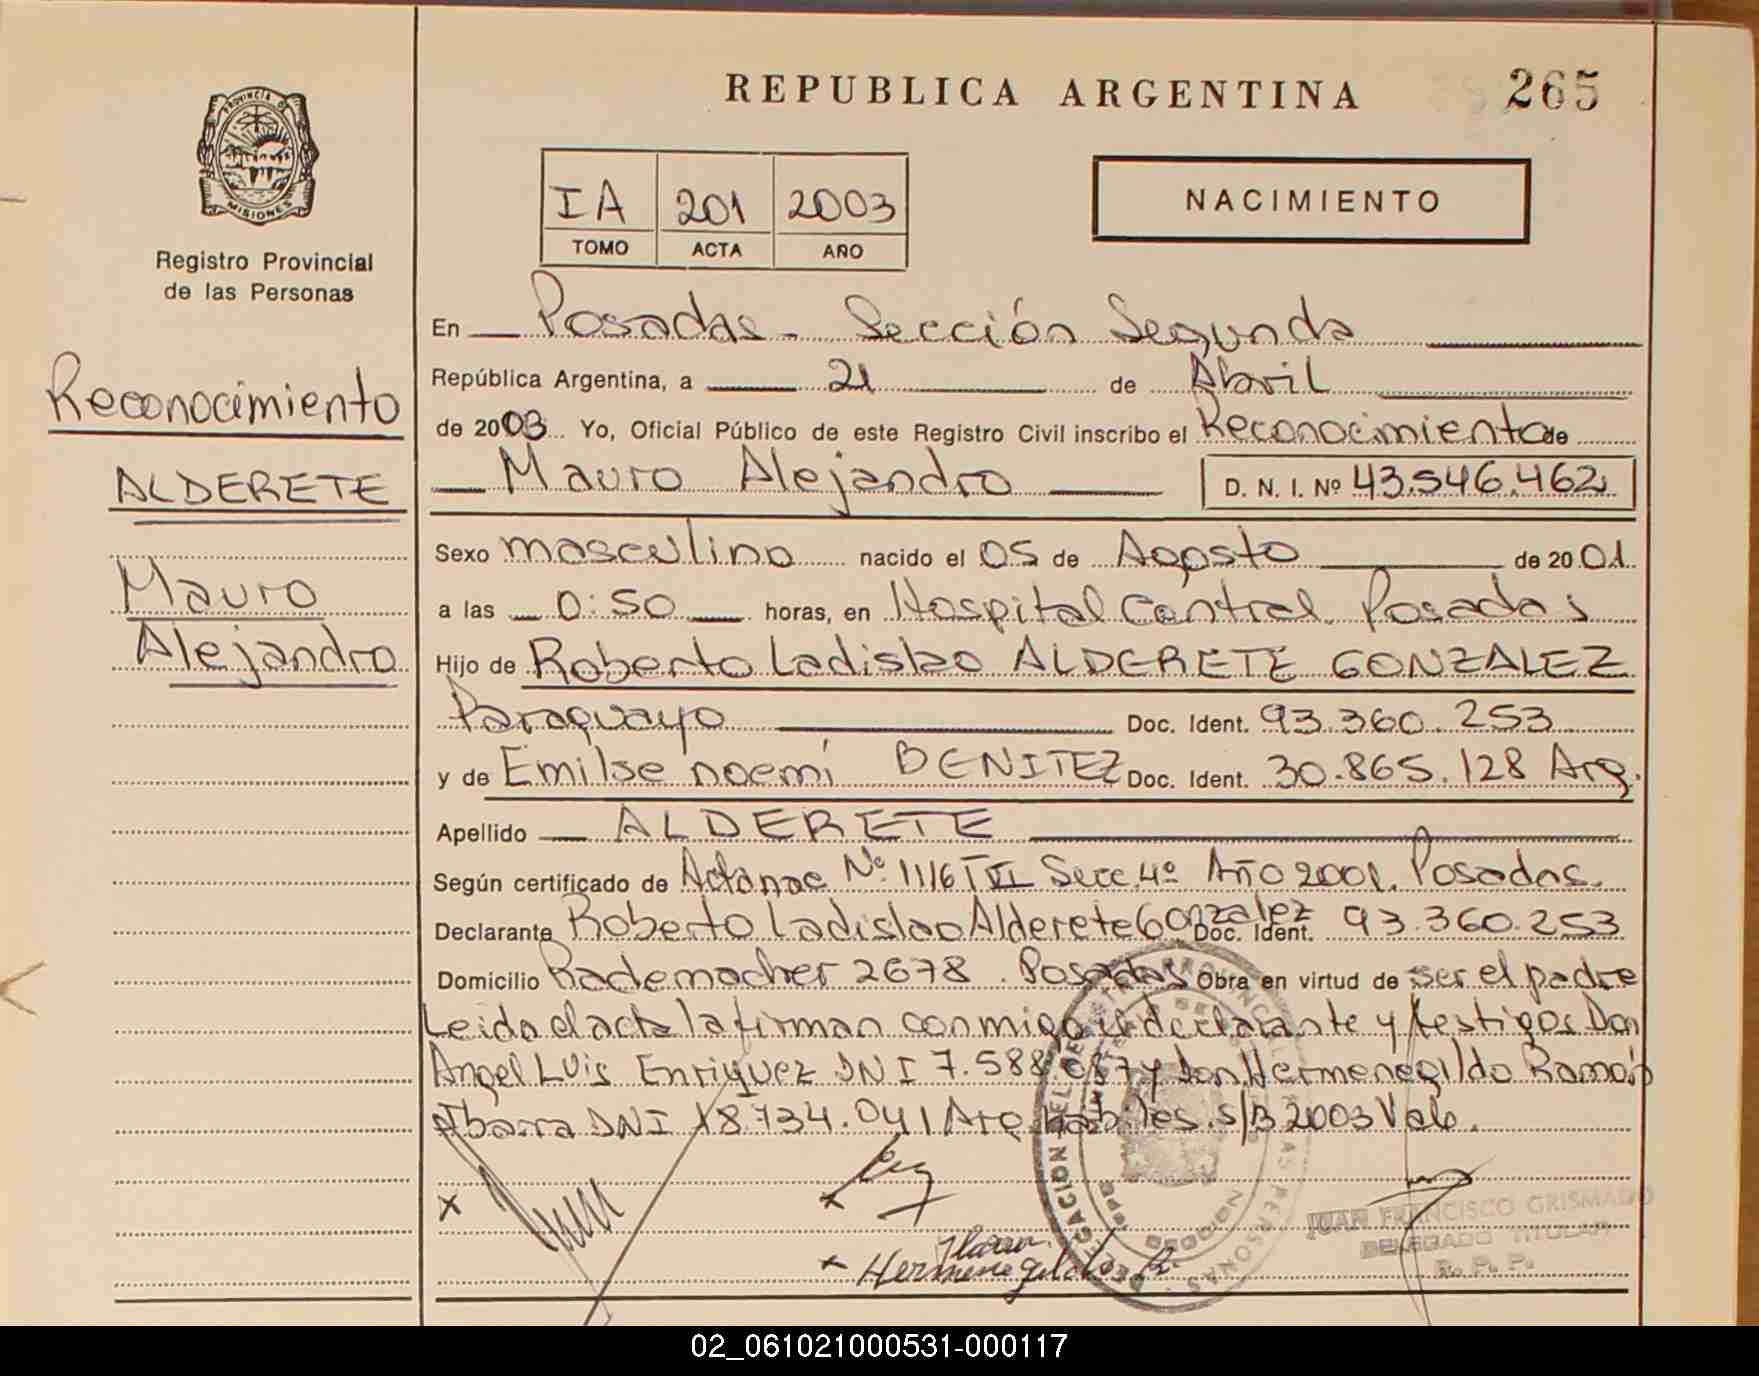 REPUBLICA ARGENTINA
265
PROVINCIA DE
MISIONES
Registro Provincial
de las Personas
IA 201 2003
TOMO ACTA AÑO
NACIMIENTO
Reconocimiento
ALDERETE
Mauro
Alejandro
En Posadas - Sección Segunda
República Argentina, a 21 de Abril
de 2003 Yo, Oficial Público de este Registro Civil inscribo el Reconocimiento de
Mauro Alejandro D. N. I. Nº 43.546.462
Sexo masculino nacido el 05 de Agosto de 2001
a las 0:50 horas, en Hospital Central Posadas
Hijo de Roberto Ladislao ALDERETE GONZALEZ
Paraguayo Doc. Ident. 93.360.253
y de Emilse noemí BENITEZ Doc. Ident. 30.865.128 Arg.
Apellido ALDERETE
Según certificado de Acta nac Nº 1116 T VI Secc. 4º Año 2001. Posadas.
Declarante Roberto Ladislao Alderete Gonzalez Doc. Ident. 93.360.253
Domicilio Rademacher 2678. Posadas Obra en virtud de ser el padre
Leida el acta la firman conmigo el declarante y testigos Don
Angel Luis Enriquez DNI 7.588 y Don Hermenegildo Ramón
Ibarra DNI 18.734.041 Arg. habiles. s/B 2003 Vale.
Ibarra
Hermenegildo R.
JUAN FRANCISCO GRISMADO
DELEGADO TITULAR
R. P. P.
02_061021000531-000117